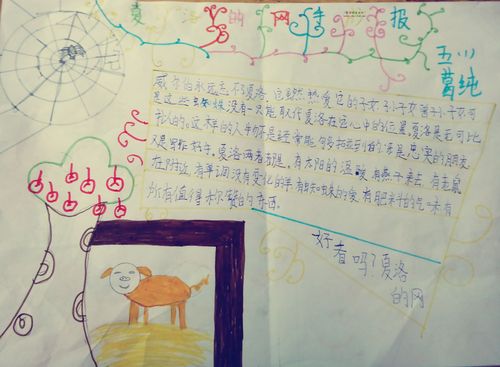 夏洛的网手抄报
五(1)
葛纯
威尔伯永远忘不了夏洛。它虽然热爱它的子女、孙子女、曾孙子女,可
是这些蜘蛛没有一只能取代夏洛在它心中的位置。夏洛是无可比
拟的。这样的人物不是经常能够碰到的:既是忠实的朋友
又是写作好手。夏洛两者都是。
有太阳的温暖,有燕子来去,有老鼠
在附近,有单调没有变化的羊,有蜘蛛的爱,有肥料的气味,有
所有值得称赞的东西。
好看吗?夏洛
的网